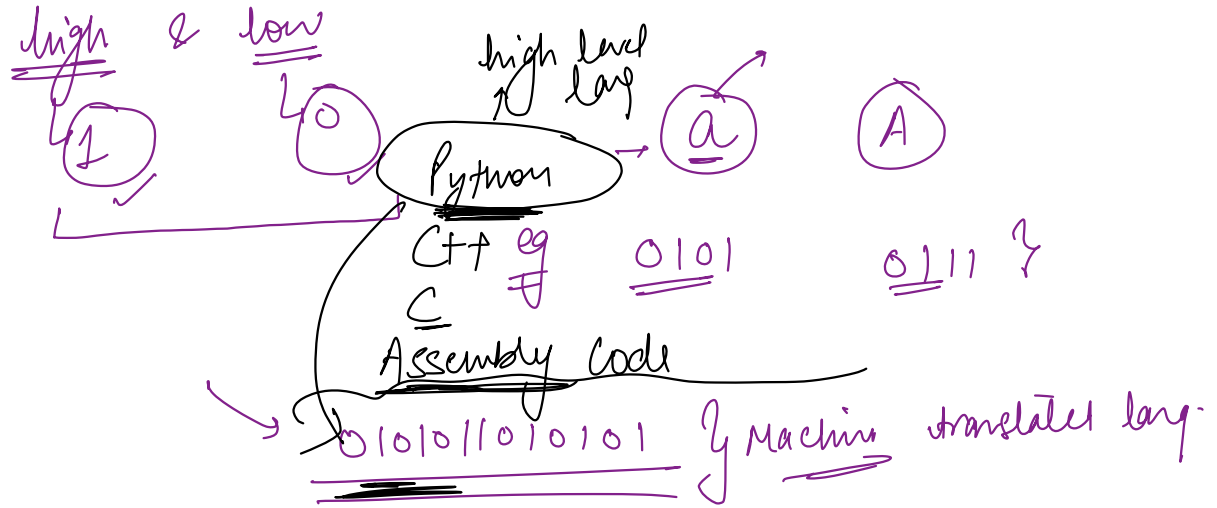 high & low
high level
lang
1 0 a A
Python
C++ eg 0101 0111 }
C
Assembly Code
0101011010101 } Machine translated lang.